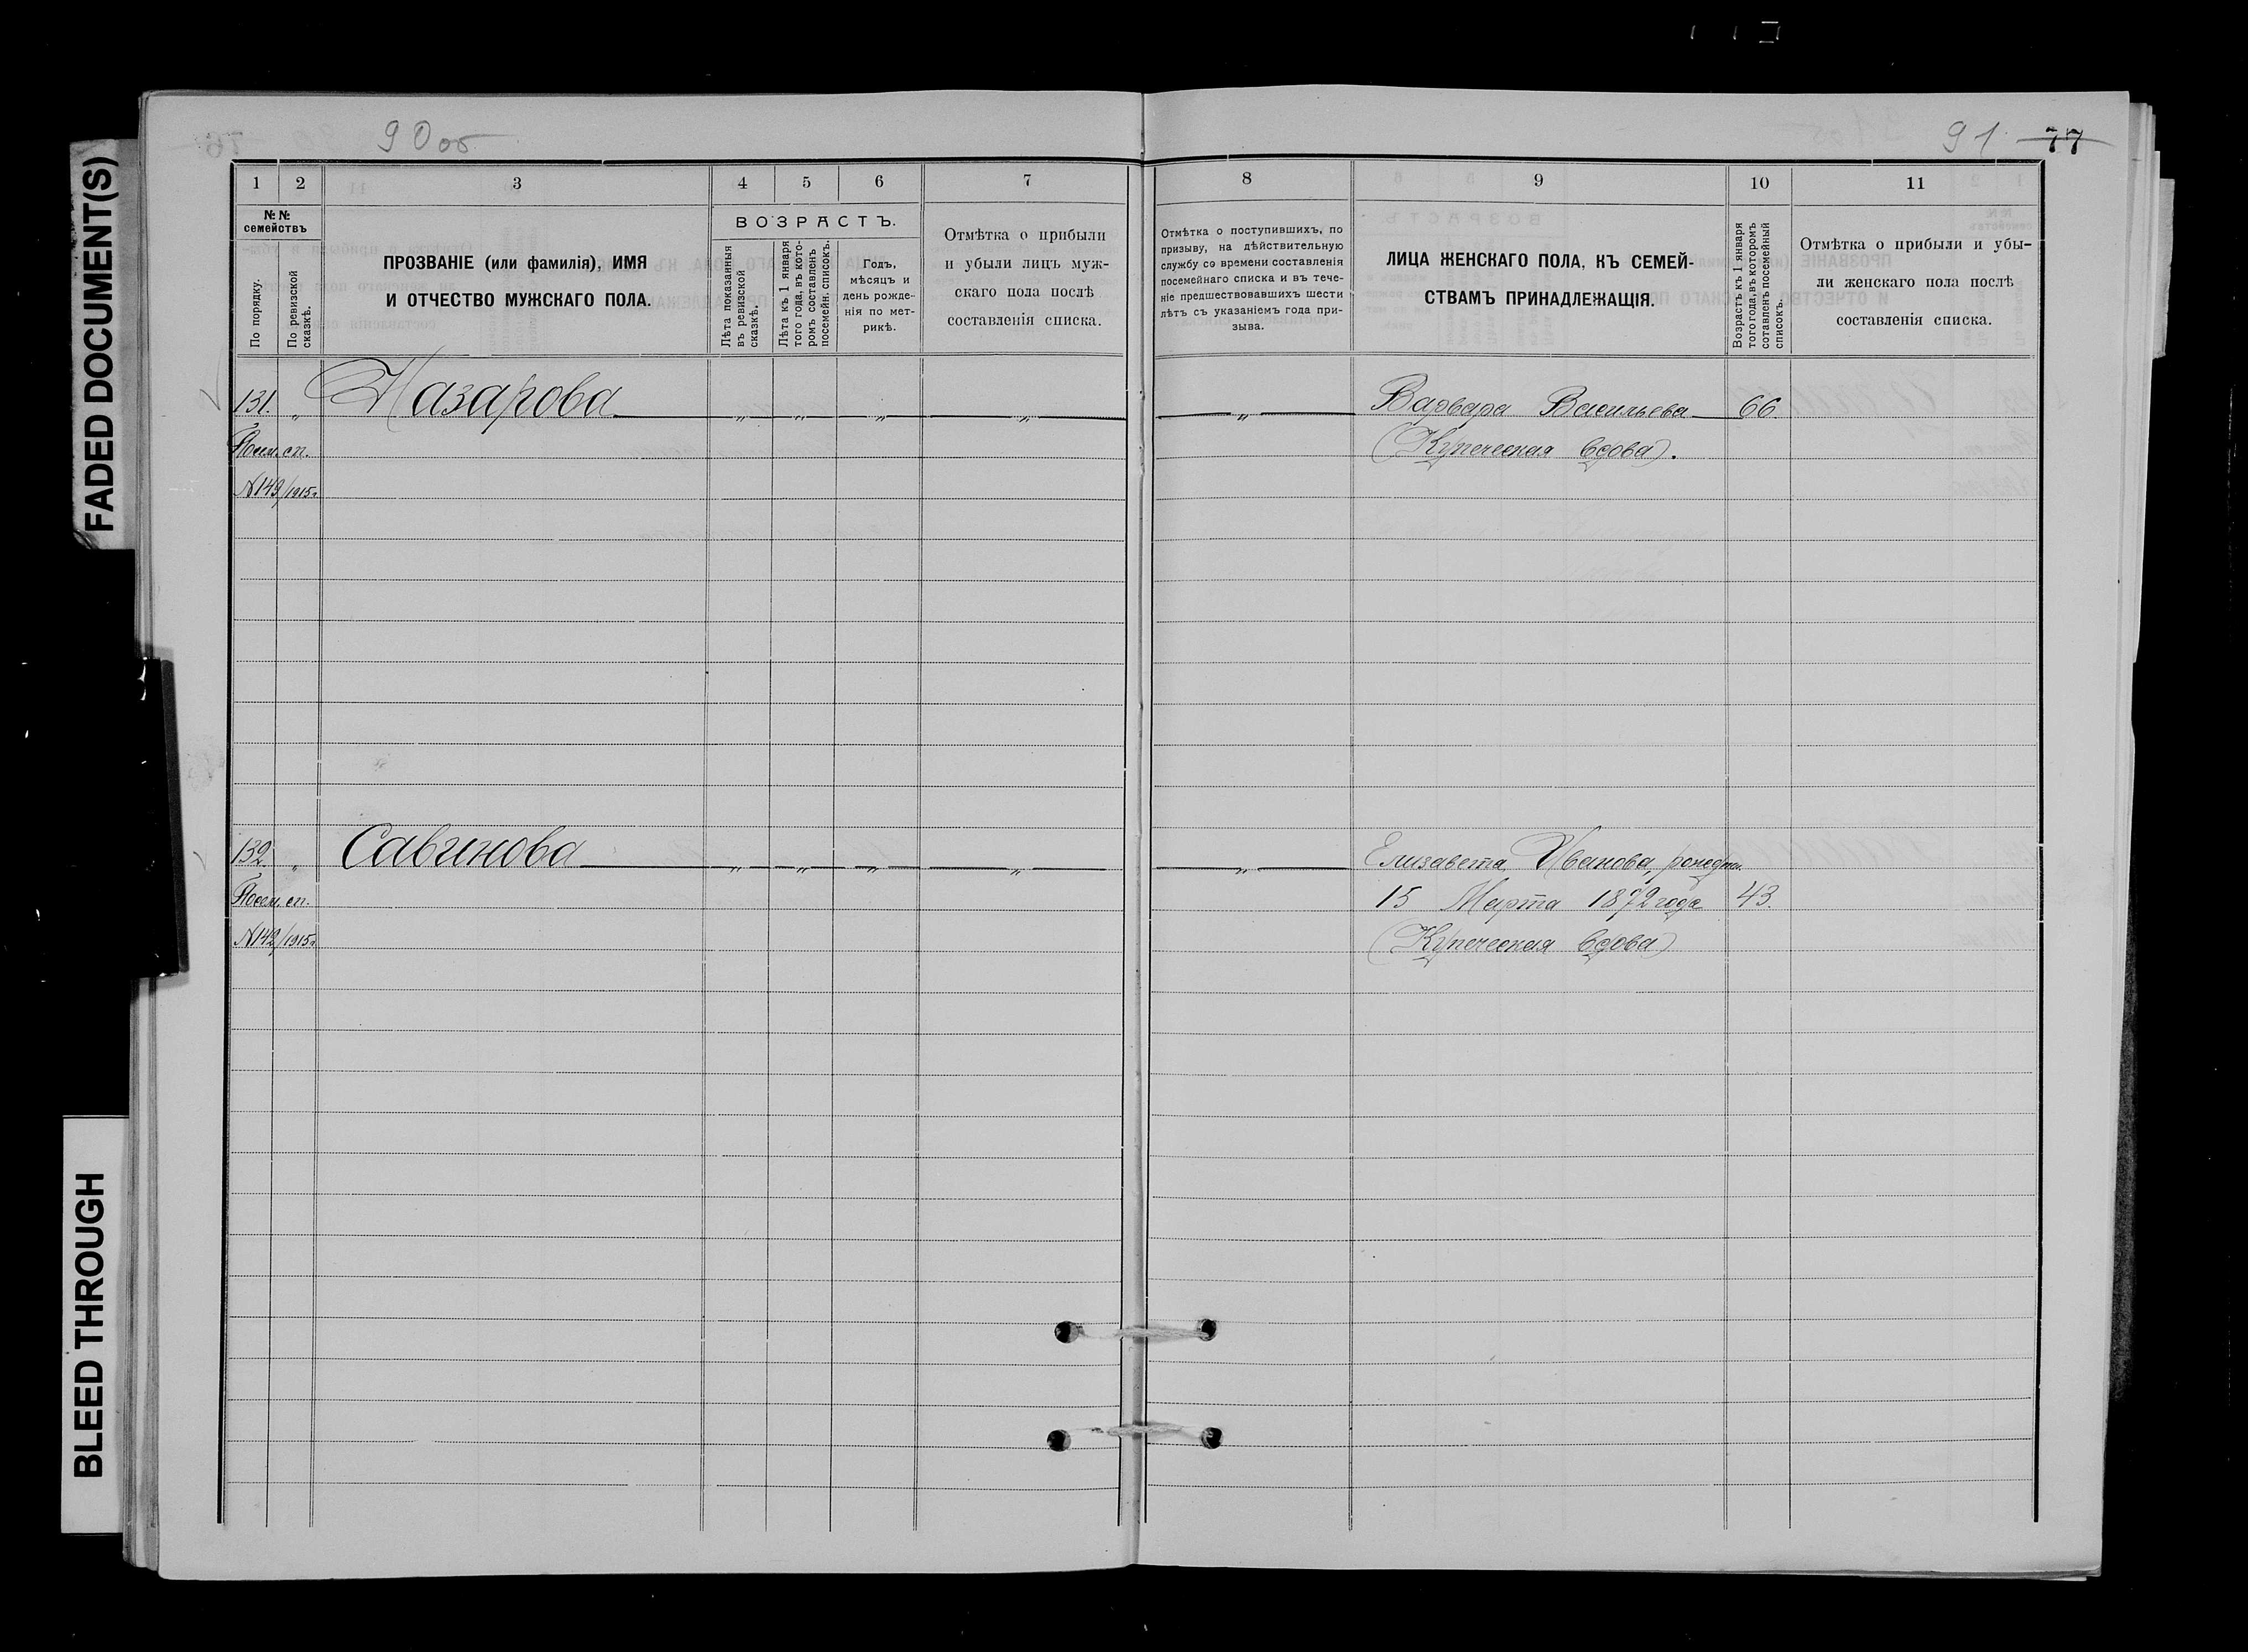 FADED DOCUMENT(S)
BLEED THROUGH
90 об
91 77
1 2 3 4 5 6 7
№№ семействъ
По порядку.
По ревизской сказкѣ.
ПРОЗВАНІЕ (или фамилія), ИМЯ
И ОТЧЕСТВО МУЖСКАГО ПОЛА.
ВОЗРАСТЪ.
Лѣта показанныя
въ ревизской
сказкѣ.
Лѣта къ 1 января
того года, въ кото-
ромъ составленъ
посемейн. списокъ.
Годъ,
мѣсяцъ и
день рожде-
нія по мет-
рикѣ.
Отмѣтка о прибыли
и убыли лицъ муж-
скаго пола послѣ
составленія списка.
131. „ Назарова „ „ „ „
Посем. сп.
№149/1915г.
132. „ Савинова „ „ „ „
Посем. сп.
№142/1915г.
8 9 10 11
Отмѣтка о поступившихъ, по
призыву, на дѣйствительную
службу со времени составленія
посемейнаго списка и въ тече-
ніе предшествовавшихъ шести
лѣтъ съ указаніемъ года при-
зыва.
ЛИЦА ЖЕНСКАГО ПОЛА, КЪ СЕМЕЙ-
СТВАМЪ ПРИНАДЛЕЖАЩІЯ.
Возрастъ къ 1 января
того года, въ которомъ
составленъ посемейный
списокъ.
Отмѣтка о прибыли и убы-
ли женскаго пола послѣ
составленія списка.
„ Варвара Васильева 66.
(Купеческая вдова).
„ Елизавета Иванова,
15 Марта 1872 года 43.
(Купеческая вдова)